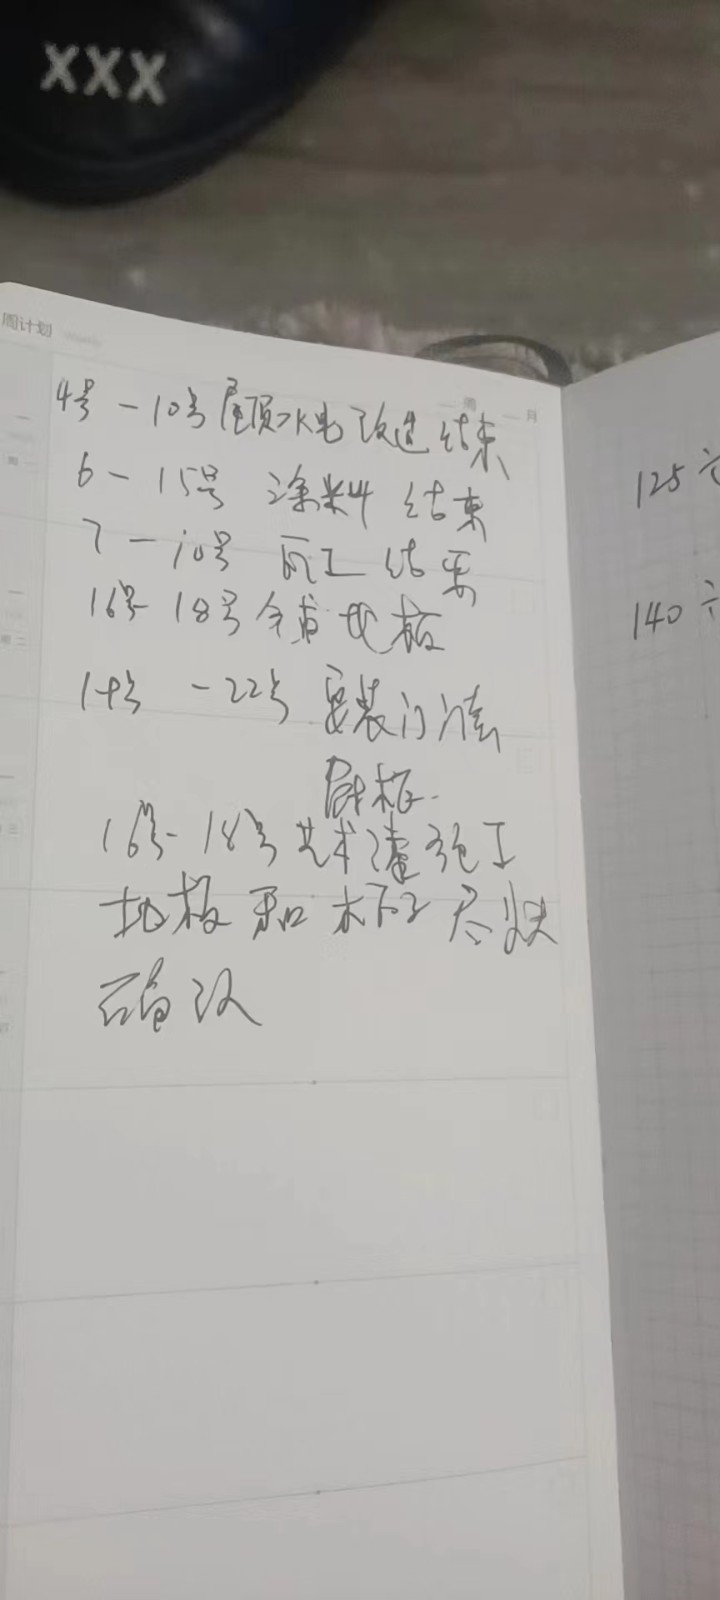 XXX
周计划
周 月
4号-10号屋顶水电改造结束
6-15号 涂料结束
7-10号 瓦工结束
16号-18号 地板
14号-22号 安装门
厨柜.
16号-18号艺术漆施工
地板和木门尽快
确认
125
140